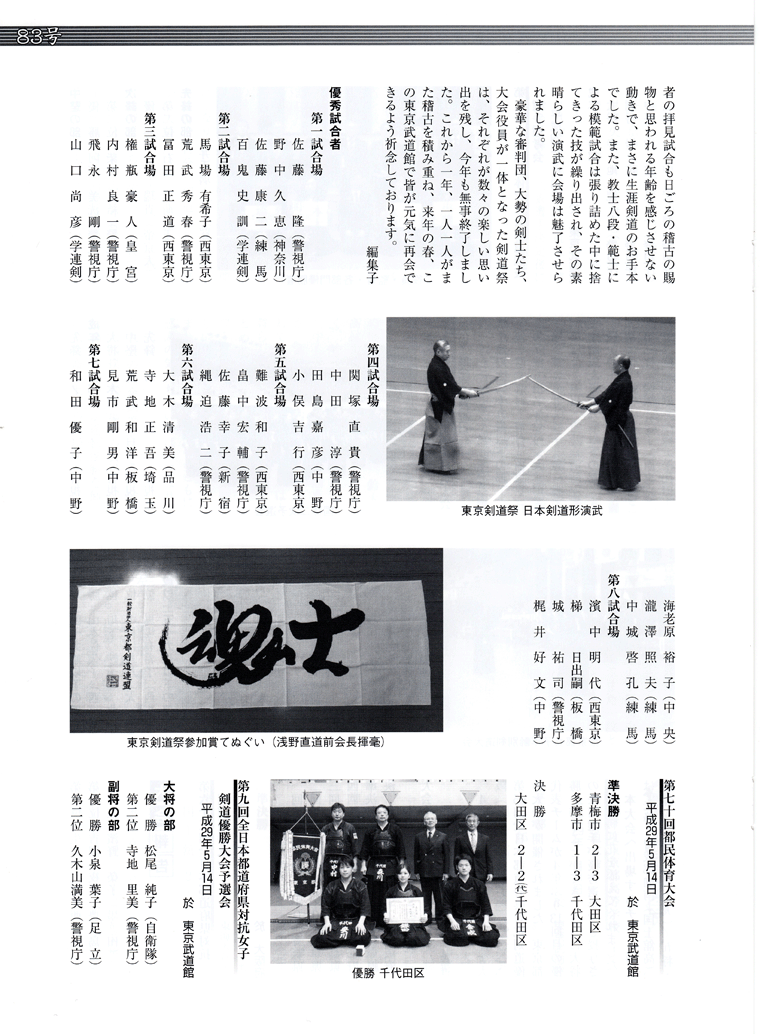 83号
者の拝見試合も日ごろの稽古の賜
物と思われる年齢を感じさせない
動きで、まさに生涯剣道のお手本
でした。また、教士八段・範士に
よる模範試合は張り詰めた中に捨
てきった技が繰り出され、その素
晴らしい演武に会場は魅了させら
れました。
豪華な審判団、大勢の剣士たち、
大会役員が一体となった剣道祭
は、それぞれが数々の楽しい思い
出を残し、今年も無事終了しまし
た。これから一年、一人一人がま
た稽古を積み重ね、来年の春、こ
の東京武道館で皆が元気に再会で
きるよう祈念しております。
編集子
優秀試合者
第一試合場
佐藤 隆(警視庁)
野中久恵(神奈川)
佐藤康二(練馬)
百鬼史訓(学連剣)
第二試合場
馬場有希子(西東京)
荒武秀春(警視庁)
冨田正道(西東京)
第三試合場
権瓶豪人(皇宮)
内村良一(警視庁)
飛永 剛(警視庁)
山口尚彦(学連剣)
第四試合場
関塚直貴(警視庁)
中田 淳(警視庁)
田島嘉彦(中野)
小俣吉行(西東京)
第五試合場
難波和子(西東京)
畠中宏輔(警視庁)
佐藤幸子(新宿)
縄迫浩二(警視庁)
第六試合場
大木清美(品川)
寺地正吾(埼玉)
荒武和洋(板橋)
見市剛男(中野)
第七試合場
和田優子(中野)
東京剣道祭 日本剣道形演武
海老原裕子(中央)
瀧澤照夫(練馬)
中城啓孔(練馬)
第八試合場
濱中明代(西東京)
梯 日出嗣(板橋)
城 祐司(警視庁)
梶井好文(中野)
士魂
一般財団法人東京都剣道連盟
東京剣道祭参加賞てぬぐい(浅野直道前会長揮毫)
第七十回都民体育大会
平成29年5月14日
於 東京武道館
準決勝
青梅市 2―3 大田区
多摩市 1―3 千代田区
決勝
大田区 2―2(代)千代田区
優勝 千代田区
第九回全日本都道府県対抗女子
剣道優勝大会予選会
平成29年5月14日
於 東京武道館
大将の部
優勝 松尾 純子(自衛隊)
第二位 寺地 里美(警視庁)
副将の部
優勝 小泉 葉子(足立)
第二位 久木山満美(警視庁)